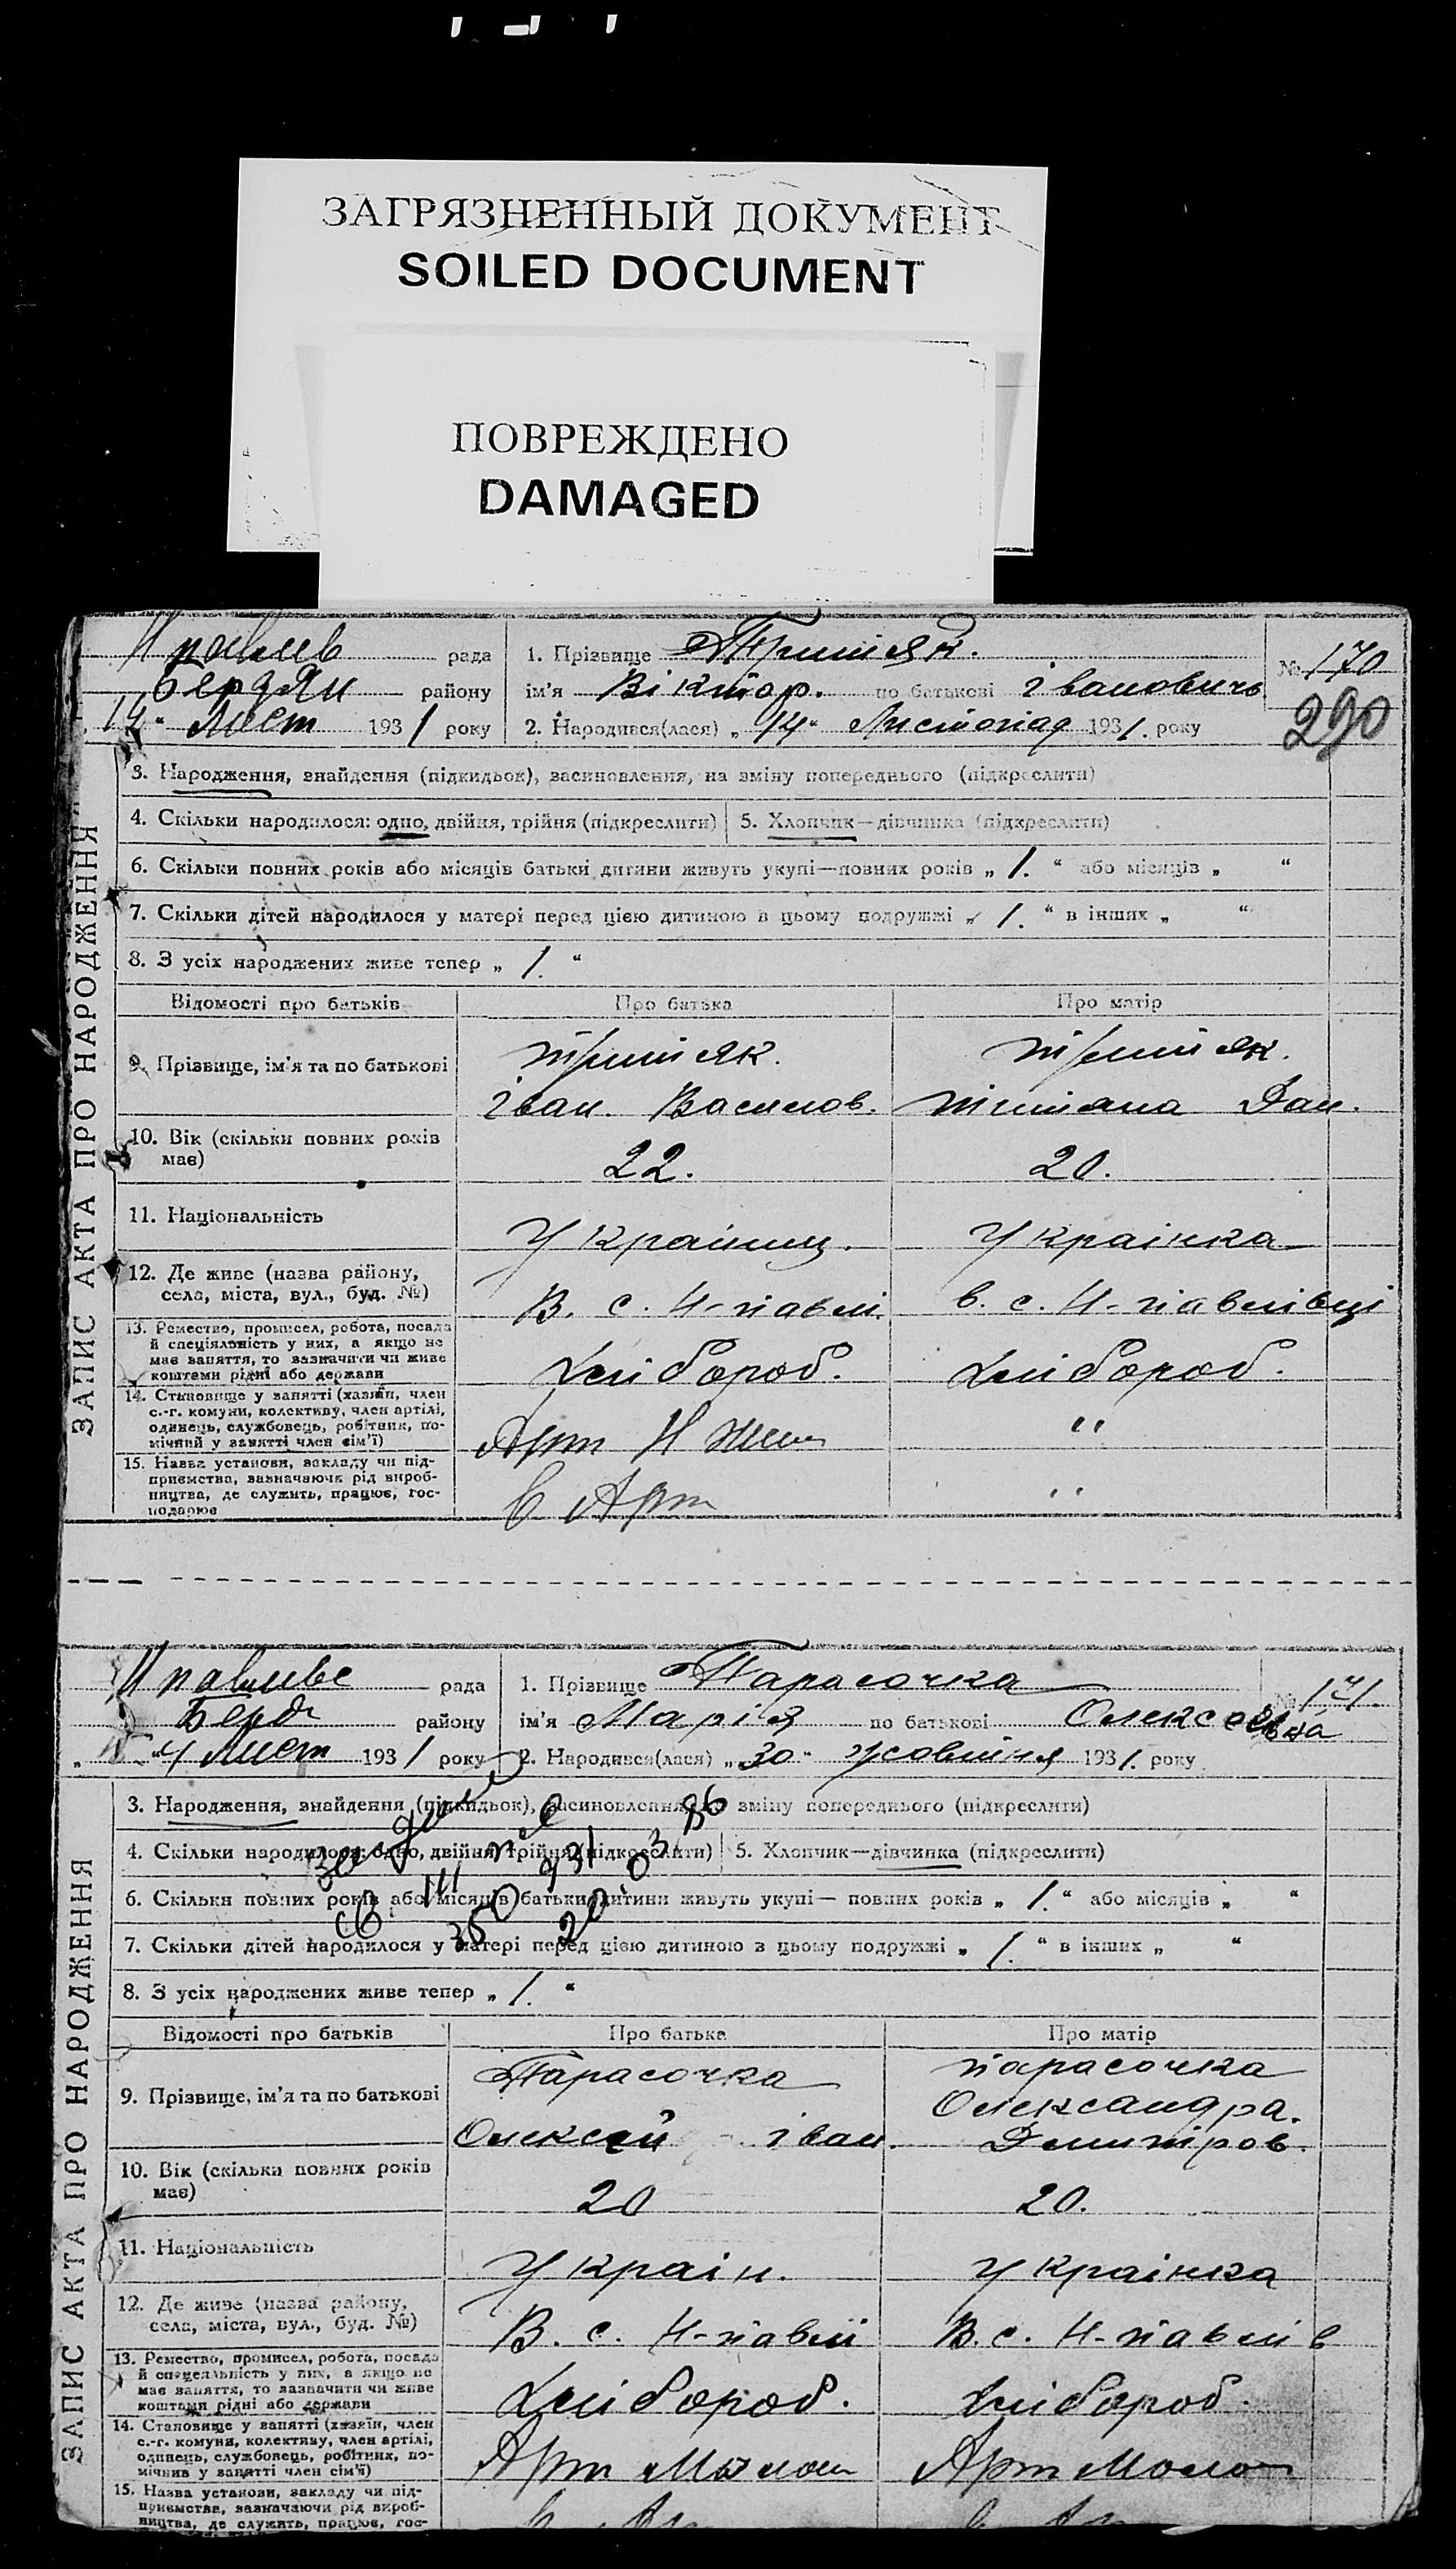 ЗАГРЯЗНЕННЫЙ ДОКУМЕНТ
SOILED DOCUMENT
ПОВРЕЖДЕНО
DAMAGED
ЗАПИС АКТА ПРО НАРОДЖЕННЯ
рада 1. Прізвище
№ 170
району ім'я Віктор. по батькові івановичь
290
14 Лист 1931 року 2. Народився(лася) „14“ Листопад 1931. року
3. Народження, знайдення (підкидьок), засиновлення, на зміну попереднього (підкреслити)
4. Скільки народилося: одно, двійня, трійня (підкреслити) 5. Хлопчик—дівчинка (підкреслити)
6. Скільки повних років або місяців батьки дитини живуть укупі—повних років „1.“ або місяців „ “
7. Скільки дітей народилося у матері перед цією дитиною в цьому подружжі „1.“ в інших „ “
8. З усіх народжених живе тепер „1.“
Відомості про батьків Про батька Про матір
9. Прізвище, ім'я та по батькові
іван. Василов. Дан.
10. Вік (скільки повних років має) 22. 20.
11. Національність Українц. Українка
12. Де живе (назва району, села, міста, вул., буд. №) В. с. Н-павлі. в. с. Н-павлівці
13. Ремество, промисел, робота, посада
й спеціяльність у них, а якщо не
має заняття, то зазначити чи живе
коштами рідні або держави
Хлібороб. Хлібороб.
14. Становище у занятті (хазяїн, член
с.-г. комуни, колективу, член артілі,
одинець, службовець, робітник, по-
мічний у занятті член сім'ї)
Арт Н “
15. Назва установи, закладу чи під-
приємства, зазначаючи рід вироб-
ництва, де служить, працює, гос-
подарює
в Арт “
ЗАПИС АКТА ПРО НАРОДЖЕННЯ
рада 1. Прізвище Тарасочка
№ 171.
Берд району ім'я Марія по батькові
Лист 1931 року 2. Народився(лася) „30“ жовтня 1931. року
3. Народження, знайдення (підкидьок), засиновлення, на зміну попереднього (підкреслити)
4. Скільки народилося: одно, двійня, трійня (підкреслити) 5. Хлопчик—дівчинка (підкреслити)
6. Скільки повних років або місяців батьки дитини живуть укупі— повних років „1.“ або місяців „ “
7. Скільки дітей народилося у матері перед цією дитиною в цьому подружжі „1.“ в інших „ “
8. З усіх народжених живе тепер „1.“
Відомості про батьків Про батька Про матір
9. Прізвище, ім'я та по батькові
Тарасочка Тарасочка
Олександра.
Олексій іван.
10. Вік (скільки повних років має) 20 20.
11. Національність Україн. Українка
12. Де живе (назва району, села, міста, вул., буд. №) В. с. Н-павлі В. с. Н-павлів
13. Ремество, промисел, робота, посада
й спецеяльність у них, а якщо не
має заняття, то зазначити чи живе
коштами рідні або держави
Хлібороб. Хлібороб.
14. Становище у занятті (хазяїн, член
с.-г. комуни, колективу, член артілі,
одинець, службовець, робітник, по-
мічник у занятті член сім'ї)
Арт Арт
15. Назва установи, закладу чи під-
приємства, зазначаючи рід вироб-
ництва, де служить, працює, гос-